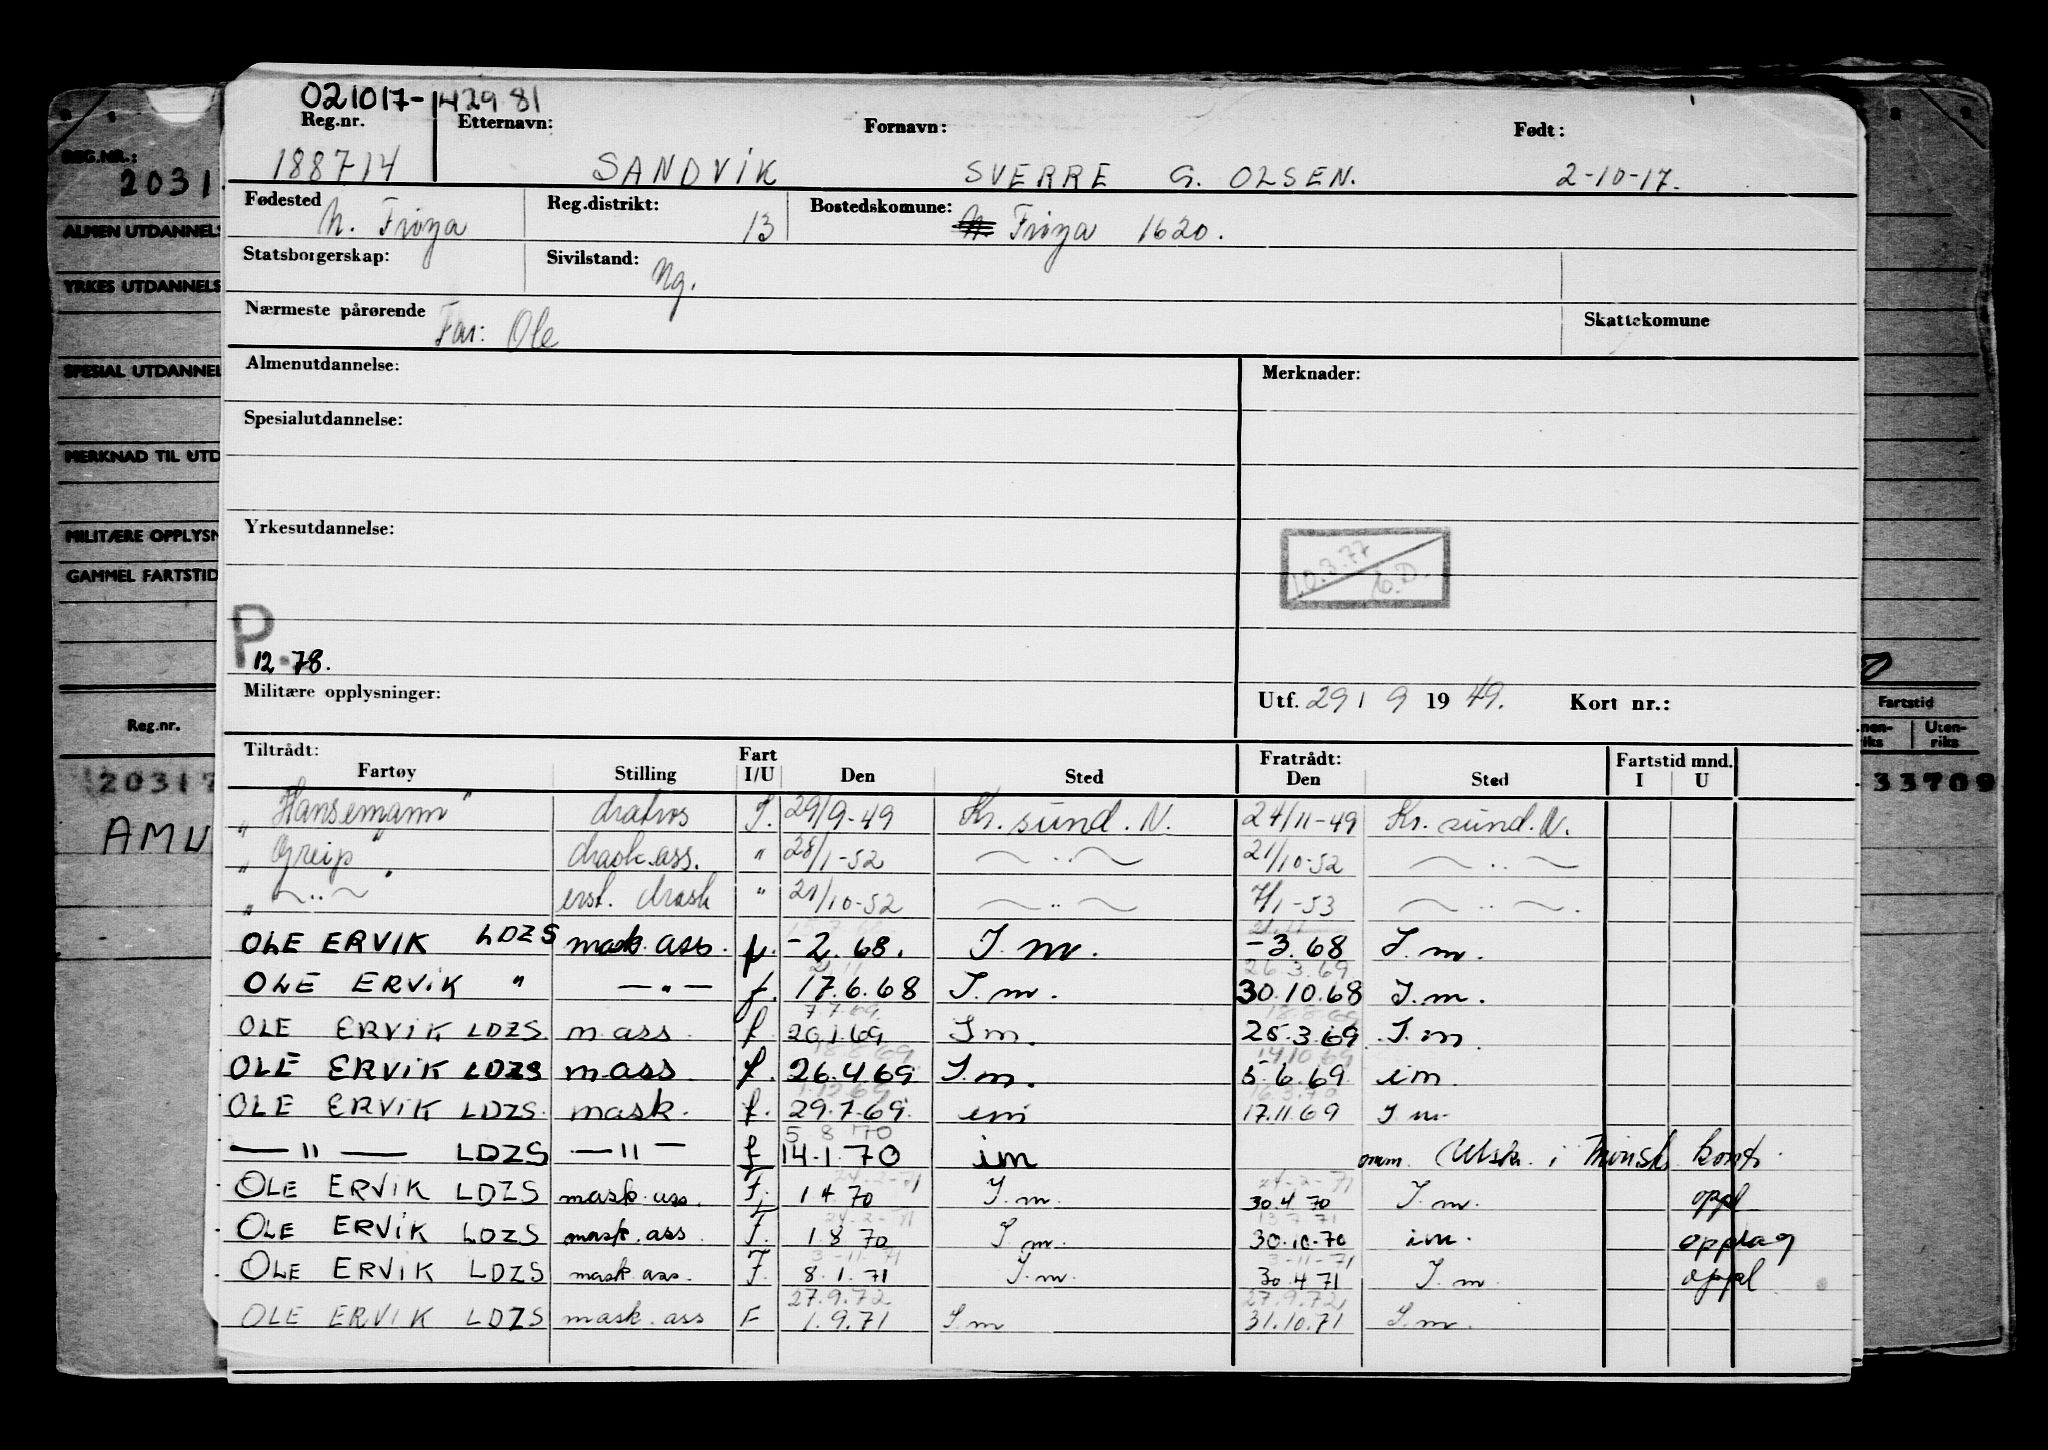 021017-42981
Reg.nr. Etternavn: Fornavn: Født:
188714 SANDVIK SVERRE G. OLSEN. 2-10-17.
Fødested N. Frøya Reg.distrikt: 13 Bostedskomune: N. Frøya 1620.
Statsborgerskap: Sivilstand: Ug.
Nærmeste pårørende Far: Ole Skattekomune
Almenutdannelse: Merknader:
Spesialutdannelse:
Yrkesutdannelse:
10.3.77
P
12-78.
Militære opplysninger: Utf. 29 / 9 19 49. Kort nr.:
Tiltrådt: Fratrådt:
Fartøy Stilling Fart I/U Den Sted Den Sted Fartstid mnd. I U
"Hansemann" matros I. 29/9-49 Kr.sund.N. 24/11-49 Kr.sund.N.
"Greip" mask.ass. " 28/1-52 ~ .. ~ 21/10-52 ~ .. ~
" ~ .. ~ " erst. mask " 21/10-52 ~ .. ~ 7/1-53 ~ .. ~.
OLE ERVIK LDZS mask.ass. f. -2.68. I.m. -3.68 I.m.
OLE ERVIK " — " — f. 17.6.68 I.m. 30.10.68 I.m.
26.3.69
OLE ERVIK LDZS m.ass f. 20.1.69 I.m. 25.3.69 I.m.
7.7.69. 18.8.69
OLE ERVIK LDZS m.ass f. 26.4.69 I.m. 5.6.69 im.
18.8.69 14.10.69
OLE ERVIK LDZS. mask. f. 29.7.69. im 17.11.69 I.m.
1.12.69 16.3.70
— " — LDZS — " — f 14.1.70 im i kont.
5 8 70
OLE ERVIK LDZS mask.ass. F. 1 4 70 I.m. 30.4.70 I.m. oppl
24-2-71 24-2-71
OLE ERVIK LDZS mask.ass. F. 1.8.70 I.m. 30.10.70 im. opplag
24-2-71 13.7.71
OLE ERVIK LDZS mask.ass. F. 8.1.71 I.m. 30.4.71 I.m. oppl
3-11-71 3-11-71
OLE ERVIK LDZS mask.ass F 1.9.71 I.m 31.10.71 I.m.
27.9.72 27.9.72
REG.NR.:
2031
ALMEN UTDANNELS
YRKES UTDANNELS
SPESIAL UTDANNEL
MERKNAD TIL UTD
MILITÆRE OPPLYSN
GAMMEL FARTSTID
Reg.nr.
20317
AMU
Fartstid
nen-riks Uten-riks
33709